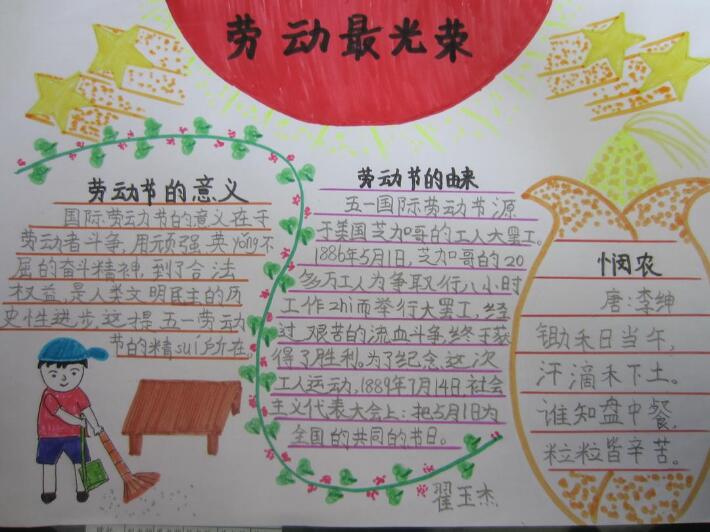 劳动最光荣
劳动节的意义
国际劳动节的意义在于
劳动者斗争,用顽强、英yǒng不
屈的奋斗精神,到了合法
权益,是人类文明民主的历
史性进步,这提五一劳动
节的精suǐ所在。
劳动节的由来
五一国际劳动节源
于美国芝加哥的工人大罢工。
1886年5月1日,芝加哥的20
多万工人为争取又行八小时
工作zhì而举行大罢工,经
过艰苦的流血斗争,终于获
得了胜利。为了纪念这次
工人运动,1889年7月14日,社会
主义代表大会上:把5月1日为
全国的共同的节日。
翟玉杰
悯农
唐:李绅
锄禾日当午,
汗滴禾下土。
谁知盘中餐,
粒粒皆辛苦。